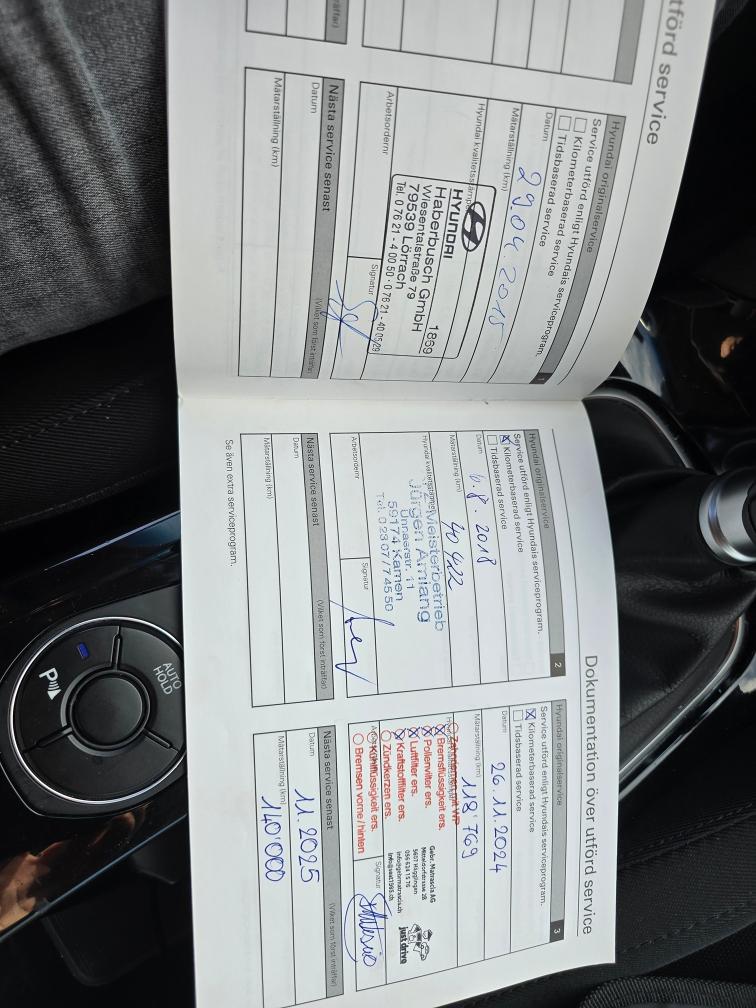 utförd service
Hyundai originalservice
1
Service utförd enligt Hyundais serviceprogram.
Kilometerbaserad service
Tidsbaserad service
Datum
29.04.2015
Mätarställning (km)
Hyundai kvalitetsstämpel
HYUNDAI
1869
Haberbusch GmbH
Wiesentalstraße 79
79539 Lörrach
Tel. 0 76 21 - 4 00 50 · 0 76 21 - 40 05 29
Arbetsordernr
Signatur
Nästa service senast
(Vilket som först inträffar)
Datum
Mätarställning (km)
Dokumentation över utförd service
Hyundai originalservice
2
Service utförd enligt Hyundais serviceprogram.
Kilometerbaserad service
Tidsbaserad service
Datum
6.8.2018
Mätarställning (km)
40 422
Hyundai kvalitetsstämpel
Meisterbetrieb
Jürgen Amlang
Unnaerstr. 11
59174 Kamen
Tel. 0 23 07 / 7 45 50
Arbetsordernr
Signatur
Nästa service senast
(Vilket som först inträffar)
Datum
Mätarställning (km)
Se även extra serviceprogram.
Hyundai originalservice
3
Service utförd enligt Hyundais serviceprogram.
Kilometerbaserad service
Tidsbaserad service
Datum
26.11.2024
Mätarställning (km)
118'769
Bremsflüssigkeit ers.
Pollenvilter ers.
Luftfilter ers.
Kraftstofffilter ers.
Zündkerzen ers.
Kühlflüssigkeit ers.
Bremsen vorne/hinten
Gebr. Matrascia AG
Mitteldorfstrasse 28
5607 Hägglingen
056 624 15 76
info@gebrmatrascia.ch
just drive
Signatur
Nästa service senast
(Vilket som först inträffar)
Datum
11.2025
Mätarställning (km)
140'000
AUTO
HOLD
P